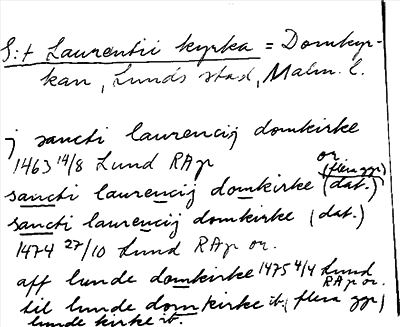 S:t Laurentii kyrka = Domkyr-
kan, Lunds stad, Malm. l.
j sancti laurencij domkirke
1463 14/8 Lund RAp or
sancti laurencij domkirke (flera ggr) (dat.)
sancti laurencij domkirke (dat.)
1474 27/10 Lund RAp or.
aff lunde domkirke 1475 4/4 Lund RAp or.
til lunde domkirke ib. (flera ggr)
lunde kirke ib.